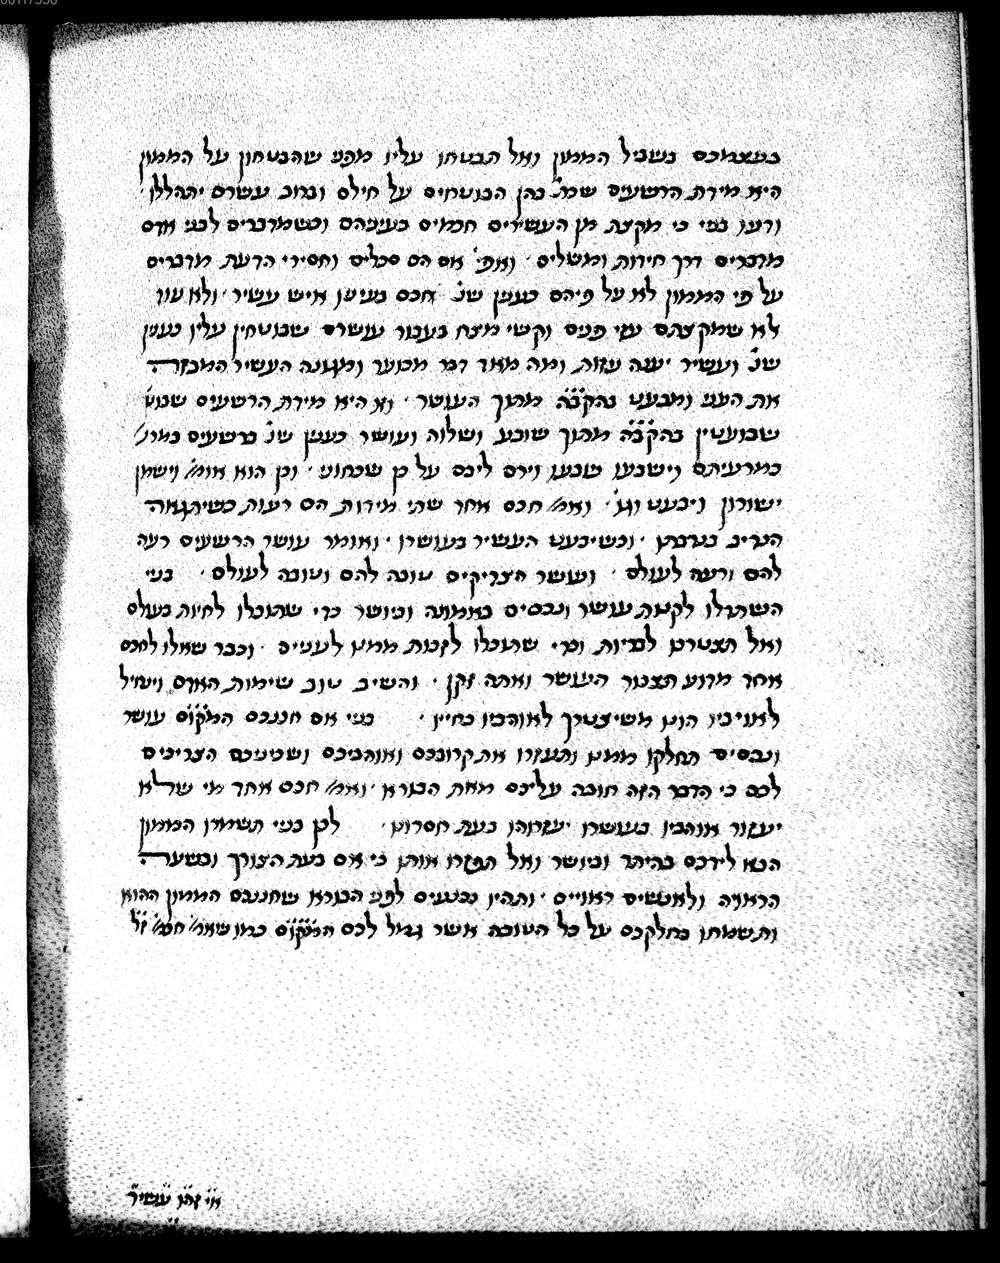 בעצמכם בשביל הממון ואל תבטחו עליו מפני שהבטחון על הממון
היא מידת הרשעים שנ׳ בהן הבוטחים על חילם וברוב עשרם יתהללו
ודעו בני כי מקצת מן העשירים חכמים בעיניהם וכשמדברים לבני אדם
מדברים דרך חידות ומשלים ואפי׳ אם הם סכלים וחסירי הדעת מדברים
על פי הממון לא על פיהם כענין שנ׳ חכם בעיניו איש עשיר ולא עוד
לא שמקצתם עזי פנים וקשי מצח בעבור עושרם שבוטחין עליו כענין
שנ׳ ועשיר יענה עזות ומה מאוד דבר מכוער ומגונה העשיר המבזה
את העני ומבעט בהקב״ה מתוך העושר וזו היא מידת הרשעים
שבועטין בהקב״ה מתוך שובע ושלוה ועושר כענין שנ׳ ברשעים
כמרעיתם וישבעו שבעו וירם ליבם על כן שכחוני וכן הוא אומ׳ וישמן
ישורון ויבעט וגו׳ ואמ׳ חכם אחד שתי מידות הם רעות כשיתגאה
הנדיב בנדבתו וכשיבעט העשיר בעושרו ואומר עושר הרשעים רעה
להם ורעה לעולם ועושר הצדיקים טובה להם וטובה לעולם בני
השתדלו לקנות עושר ונכסים באמונה וביושר כדי שתוכלו לחיות בעולם
ואל תצטרכו לבריות וכדי שתוכלו לזכות ממנו לעניים וכבר שאלו לחכם
אחד מדוע תצבור העושר ואתה זקן והשיב טוב שימות האדם וינחיל
לאויביו הונו משיצטרך לאוהביו בחייו בני אם חננכם המקום עושר
ונכסים תחלקו ממנו ותעזרו את קרובכם ואוהביכם ושכיניכם הצריכים
לכם כי הדבר הזה חובה עליכם מאת הבורא ואמ׳ חכם אחד מי שלא
יעזור אוהביו בעושרו יעזבוהו בעת חסרונו לכן בני תשמרו הממון
הבא לידכם בהיתר וביושר ואל תפזרו אותו כי אם בעת הצורך ובשעה
הראויה ולאנשים ראויים ותהיו נכנעים לפני הבורא שחננכם הממון ההוא
ותשמחו בחלקכם על כל הטובה אשר גמל לכם המקום כמו שאמ׳ חכמ׳ ז״ל
אי זהו עשיר